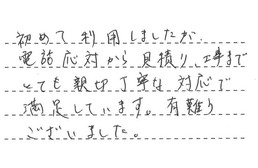 初めて利用しましたが、
電話応対から見積り、工事まで
とても親切丁寧な対応で
満足しています。有難う
ございました。